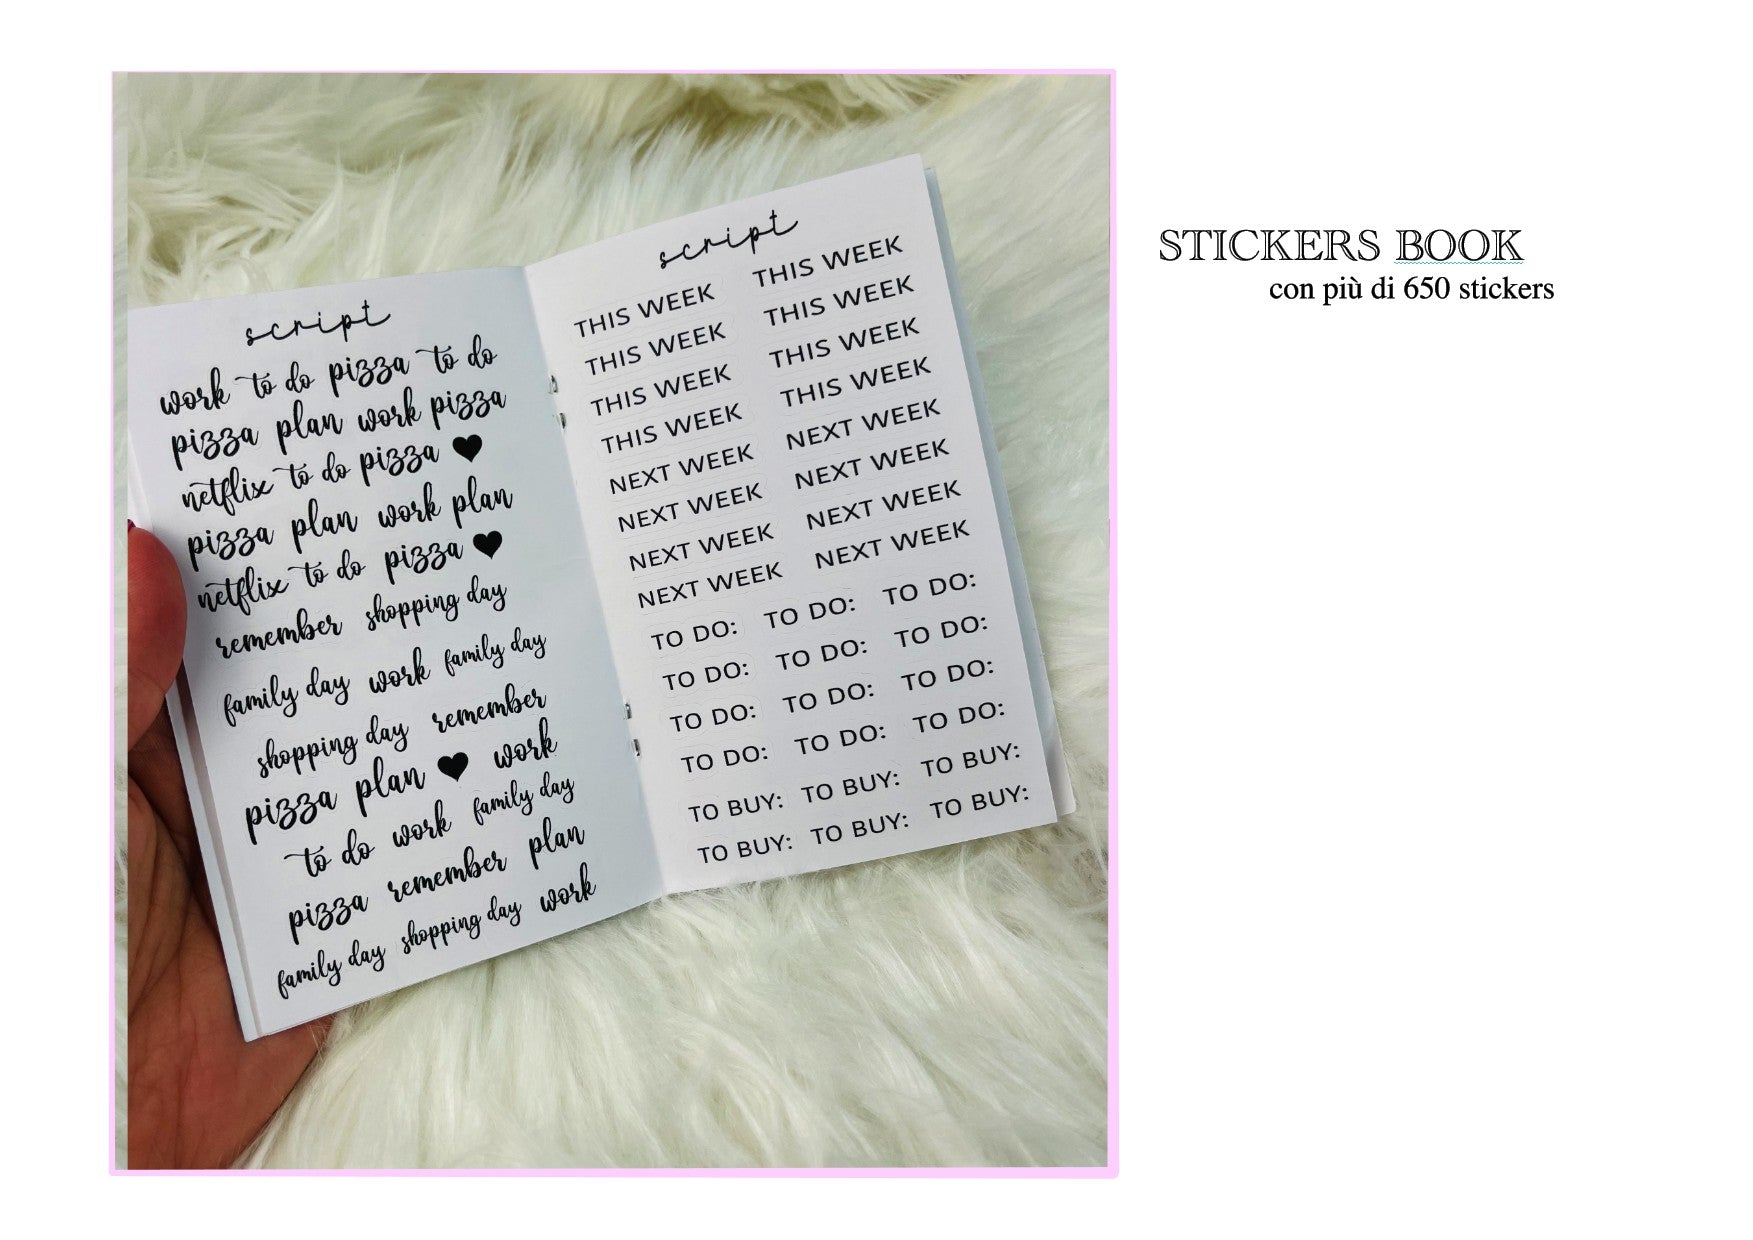 script
work to do pizza to do
pizza plan work pizza
netflix to do pizza
pizza plan work plan
netflix to do pizza
remember shopping day
family day work family day
shopping day remember
pizza plan work
to do work family day
pizza remember plan
family day shopping day work
script
THIS WEEK THIS WEEK
THIS WEEK THIS WEEK
THIS WEEK THIS WEEK
THIS WEEK THIS WEEK
NEXT WEEK NEXT WEEK
NEXT WEEK NEXT WEEK
NEXT WEEK NEXT WEEK
NEXT WEEK NEXT WEEK
TO DO: TO DO: TO DO:
TO DO: TO DO: TO DO:
TO DO: TO DO: TO DO:
TO DO: TO DO: TO DO:
TO BUY: TO BUY: TO BUY:
TO BUY: TO BUY: TO BUY:
STICKERS BOOK
con più di 650 stickers